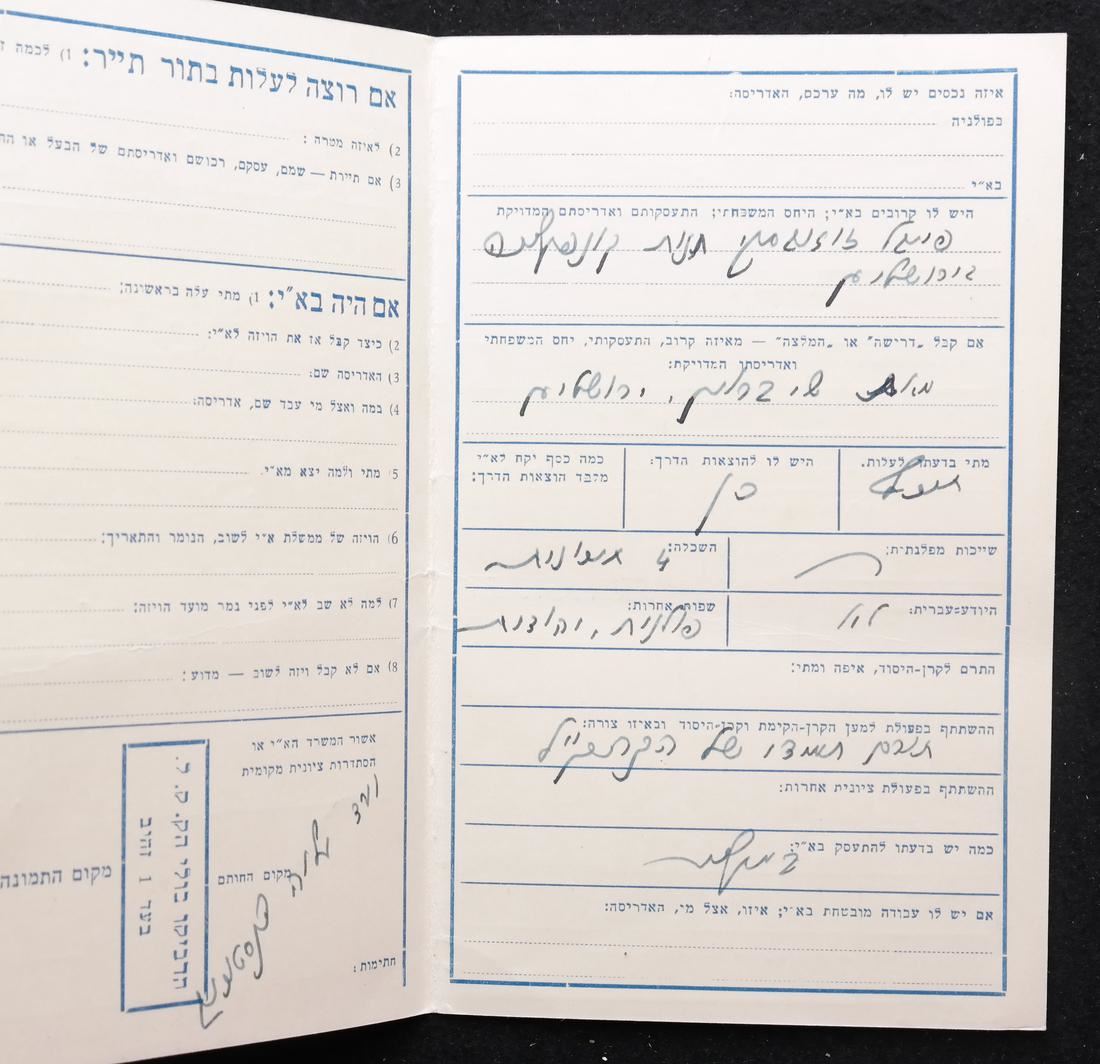 איזה נכסים יש לו, מה ערכם, האדריסה:
בפולניה
בא״י
היש לו קרובים בא״י; היחס המשפחתי; התעסקותם ואדריסתם המדויקת
חנות
בירושלים
אם קבל „דרישה" או „המלצה" — מאיזה קרוב, התעסקותו, יחס המשפחתי
ואדריסתו המדויקת:
מאת ירושלים
מתי בדעתו לעלות.
היש לו להוצאות הדרך:
כן
כמה כסף יקח לא״י
מלבד הוצאות הדרך:
שייכות מפלגתית:
השכלה:
4
היודע=עברית:
לא
שפות אחרות:
פולנית, יהודית
התרם לקרן-היסוד, איפה ומתי:
ההשתתף בפעולת למען הקרן-הקימת וקרן-היסוד ובאיזו צורה:
תורם תמידי של הקהק״ל
ההשתתף בפעולת ציונית אחרות:
כמה יש בדעתו להתעסק בא״י:
אם יש לו עבודה מובטחת בא״י; איזו, אצל מי, האדריסה:
אם רוצה לעלות בתור תייר: 1) לכמה
2) לאיזה מטרה:
3) אם תיירת — שמם, עסקם, רכושם ואדריסתם של הבעל או
אם היה בא״י: 1) מתי עלה בראשינה:
2) כיצד קבל אז את הויזה לא״י:
3) האדריסה שם:
4) במה ואצל מי עבד שם, אדריסה:
5) מתי ולמה יצא מא״י.
6) הויזה של ממשלת א״י לשוב, הנומר והתאריך:
7) למה לא שב לא״י לפני גמר מועד הויזה:
8) אם לא קבל ויזה לשוב — מדוע:
אשור המשרד הא״י או
הסתדרות ציונית מקומית
ועד
מקום החותם
חתימות:
הדביקו בולי הק. ק. ל.
בעד 1 זהוב
מקום התמונה